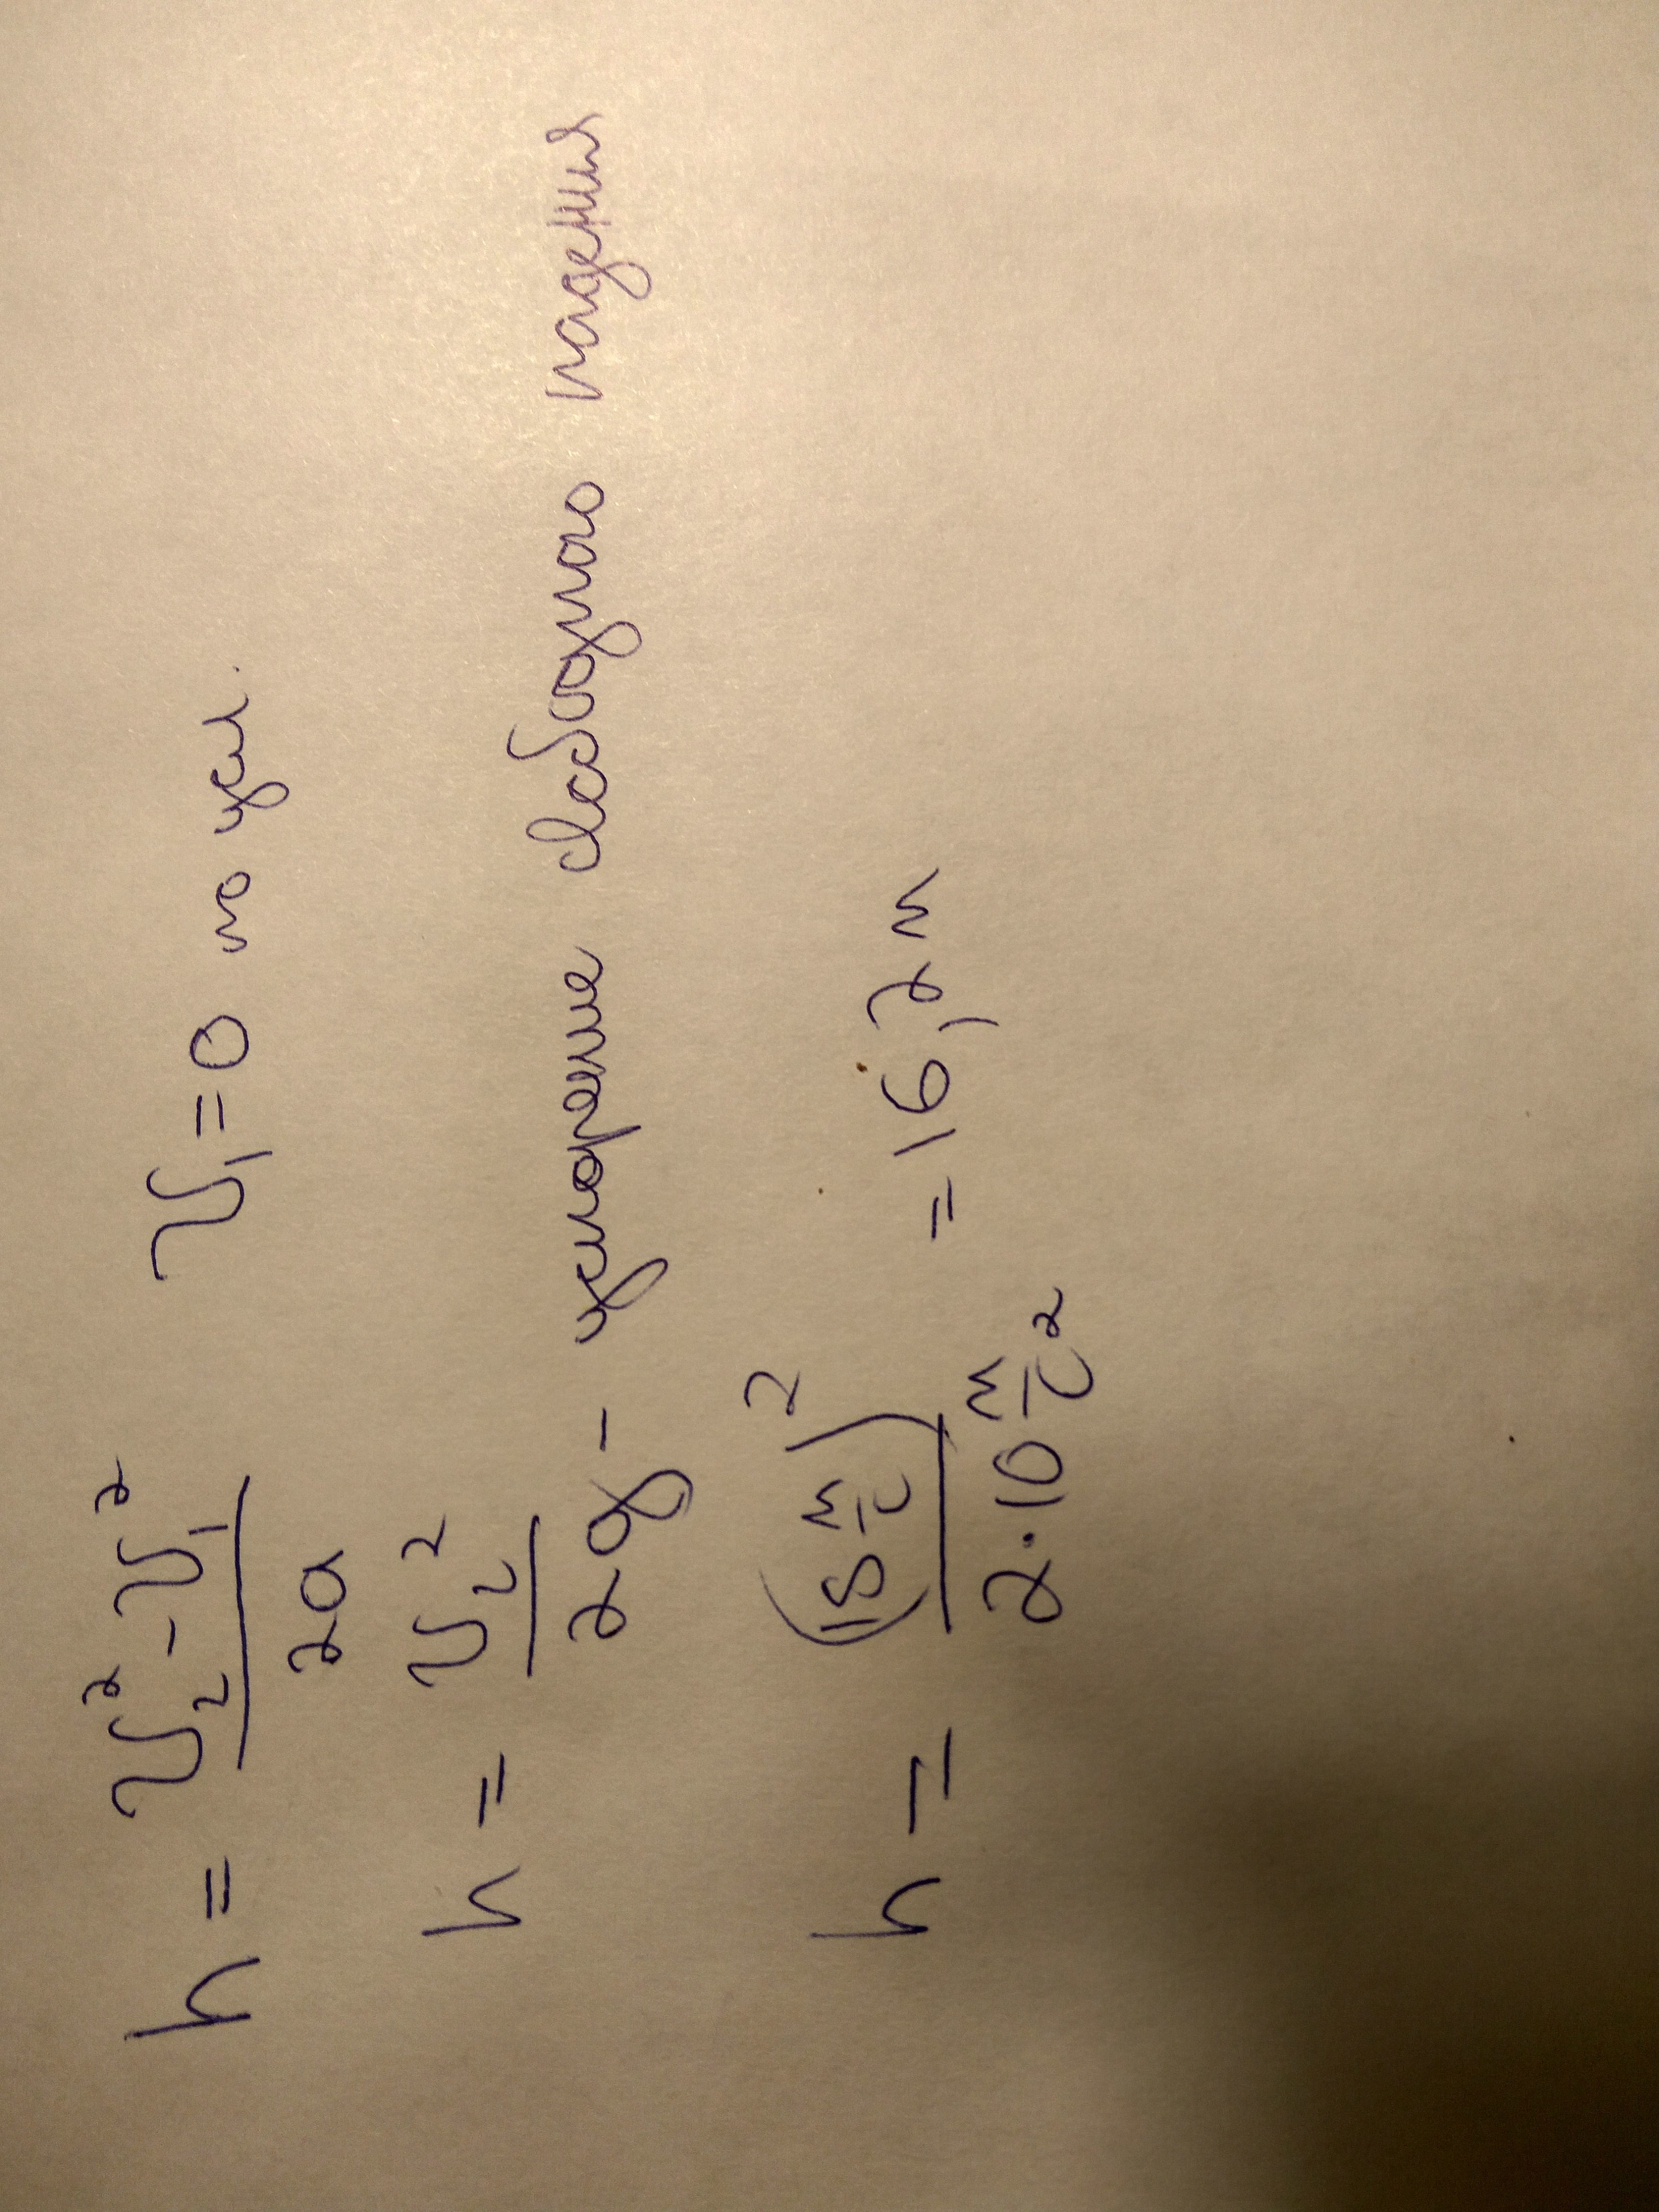 h = (υ₂² - υ₁²) / 2a   υ₁ = 0 по усл.
h = υ₂² / 2g - ускорение свободного падения
h = (18 м/с)² / 2·10 м/с² = 16,2 м